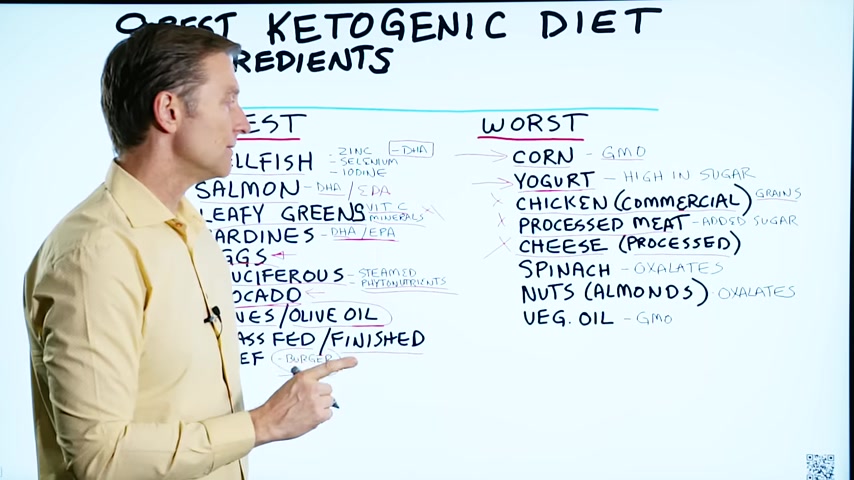 BEST KETOGENIC DIET
REDIENTS
EST
WORST
ELLFISH - ZINC - DHA
- SELENIUM
- IODINE
SALMON - DHA / EPA
LEAFY GREENS VIT C
MINERALS
ARDINES - DHA/EPA
GGS
UCIFEROUS - STEAMED
- PHYTONUTRIENTS
OCADO
VES/OLIVE OIL
ASS FED/FINISHED
EF - BURGER
CORN - GMO
YOGURT - HIGH IN SUGAR
CHICKEN (COMMERCIAL) GRAINS
PROCESSED MEAT - ADDED SUGAR
CHEESE (PROCESSED)
SPINACH - OXALATES
NUTS (ALMONDS) OXALATES
VEG. OIL - GMO